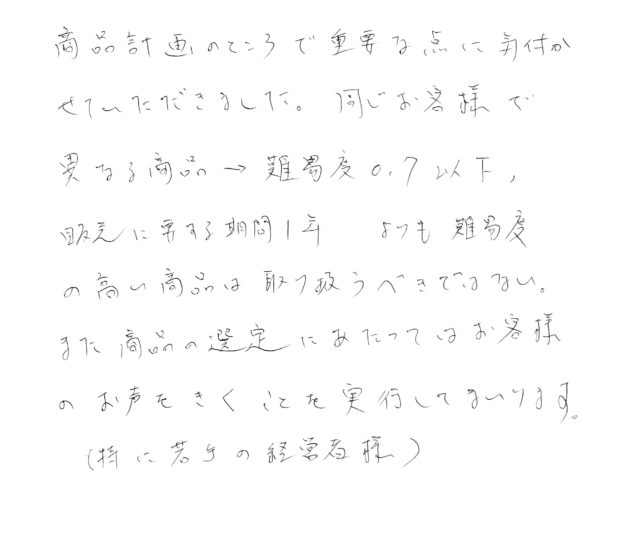 商品計画のところで重要な点に気付か
せていただきました。同じお客様で
異なる商品→難易度0.7以下,
販売に要する期間1年 よりも難易度
の高い商品は取り扱うべきではない。
また商品の選定にあたってはお客様
のお声をきくことを実行してまいります。
(特に若手の経営者様)